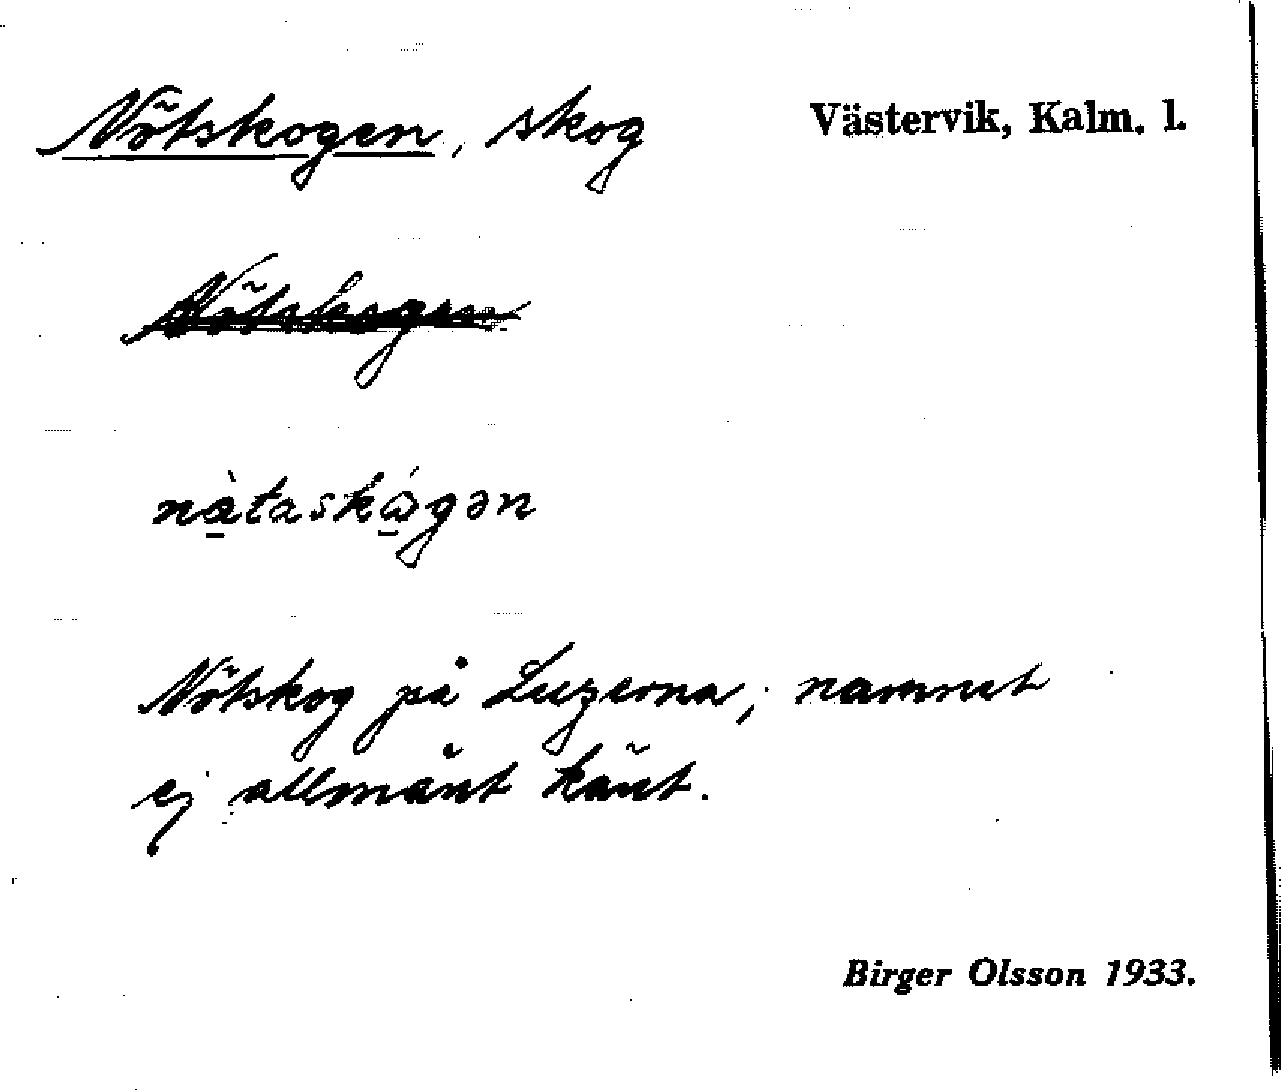 Nötskogen, skog Västervik, Kalm. l.
Nötskogen
Nötskog på Luzerna; namnet
ej allmänt känt.
Birger Olsson 1933.